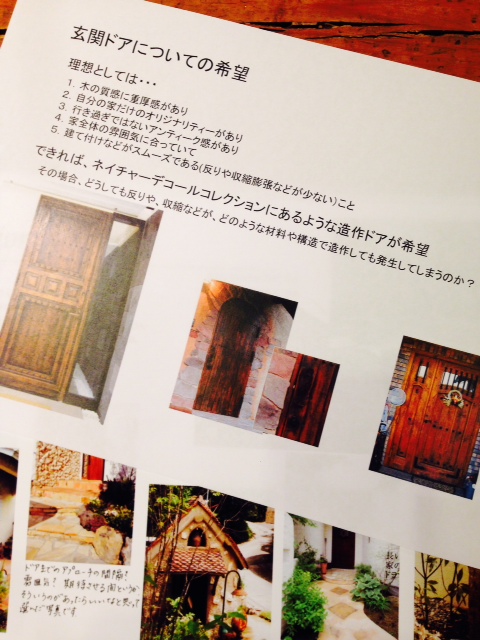 玄関ドアについての希望
理想としては・・・
1. 木の質感に重厚感があり
2. 自分の家だけのオリジナリティーがあり
3. 行き過ぎではないアンティーク感があり
4. 家全体の雰囲気に合っていて
5. 建て付けなどがスムーズである(反りや収縮膨張などが少ない)こと
できれば、ネイチャーデコールコレクションにあるような造作ドアが希望
その場合、どうしても反りや、収縮などが、どのような材料や構造で造作しても発生してしまうのか？
ドアまでのアプローチの間隔！
雰囲気！ 期待させる間というか
そういうのがあったらいいなと思って
選んだ写真です